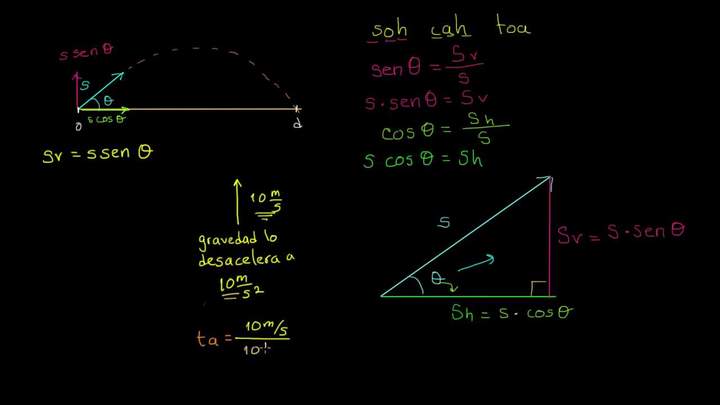 soh cah toa
s sen θ
sen θ = Sv/s
s
θ
s cos θ
s · sen θ = Sv
0
d
cos θ = Sh/s
Sv = s sen θ
s cos θ = Sh
10 m/s
s
gravedad lo
desacelera a
10 m/s²
Sv = s · sen θ
θ
Sh = s · cos θ
ta = 10 m/s / 10